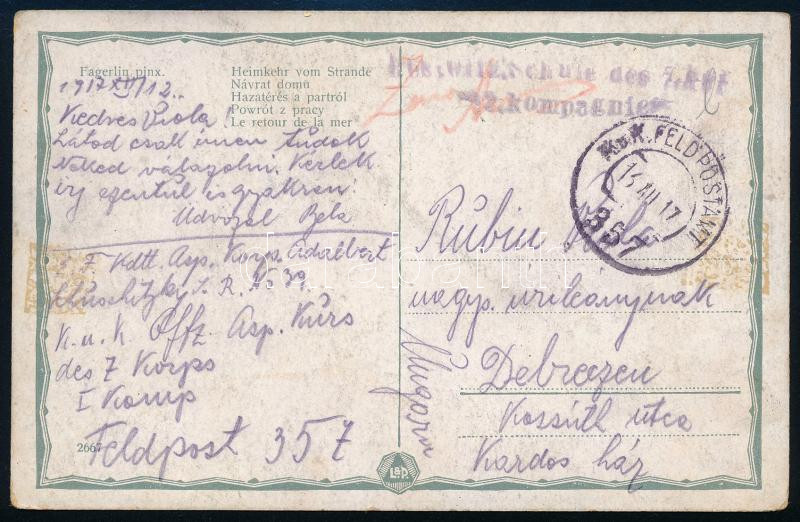 Fagerlin pinx.
Heimkehr vom Strande
Návrat domů
Hazatérés a partról
Powrót z pracy
Le retour de la mer
1917 XII/12.
Kedves Viola!
Látod csak innen tudok
Neked válaszolni. Kérlek
írj ezentúl is gyakran.
Üdvözöl Béla
Kdtt. Asp. Korp. Adalbert
I. R. N. 39.
K. u. k. Offz. Asp. Kurs
des 7 Korps
I Komp
Feldpost 357
2667
L&P.
Schule des 7. Kps
2. Kompagnie
K.u.K. FELDPOSTAMT
XII 17
357
Rubin
nagys. urileánynak
Debreczen
Kossuth utca
Kardos ház
Ungarn